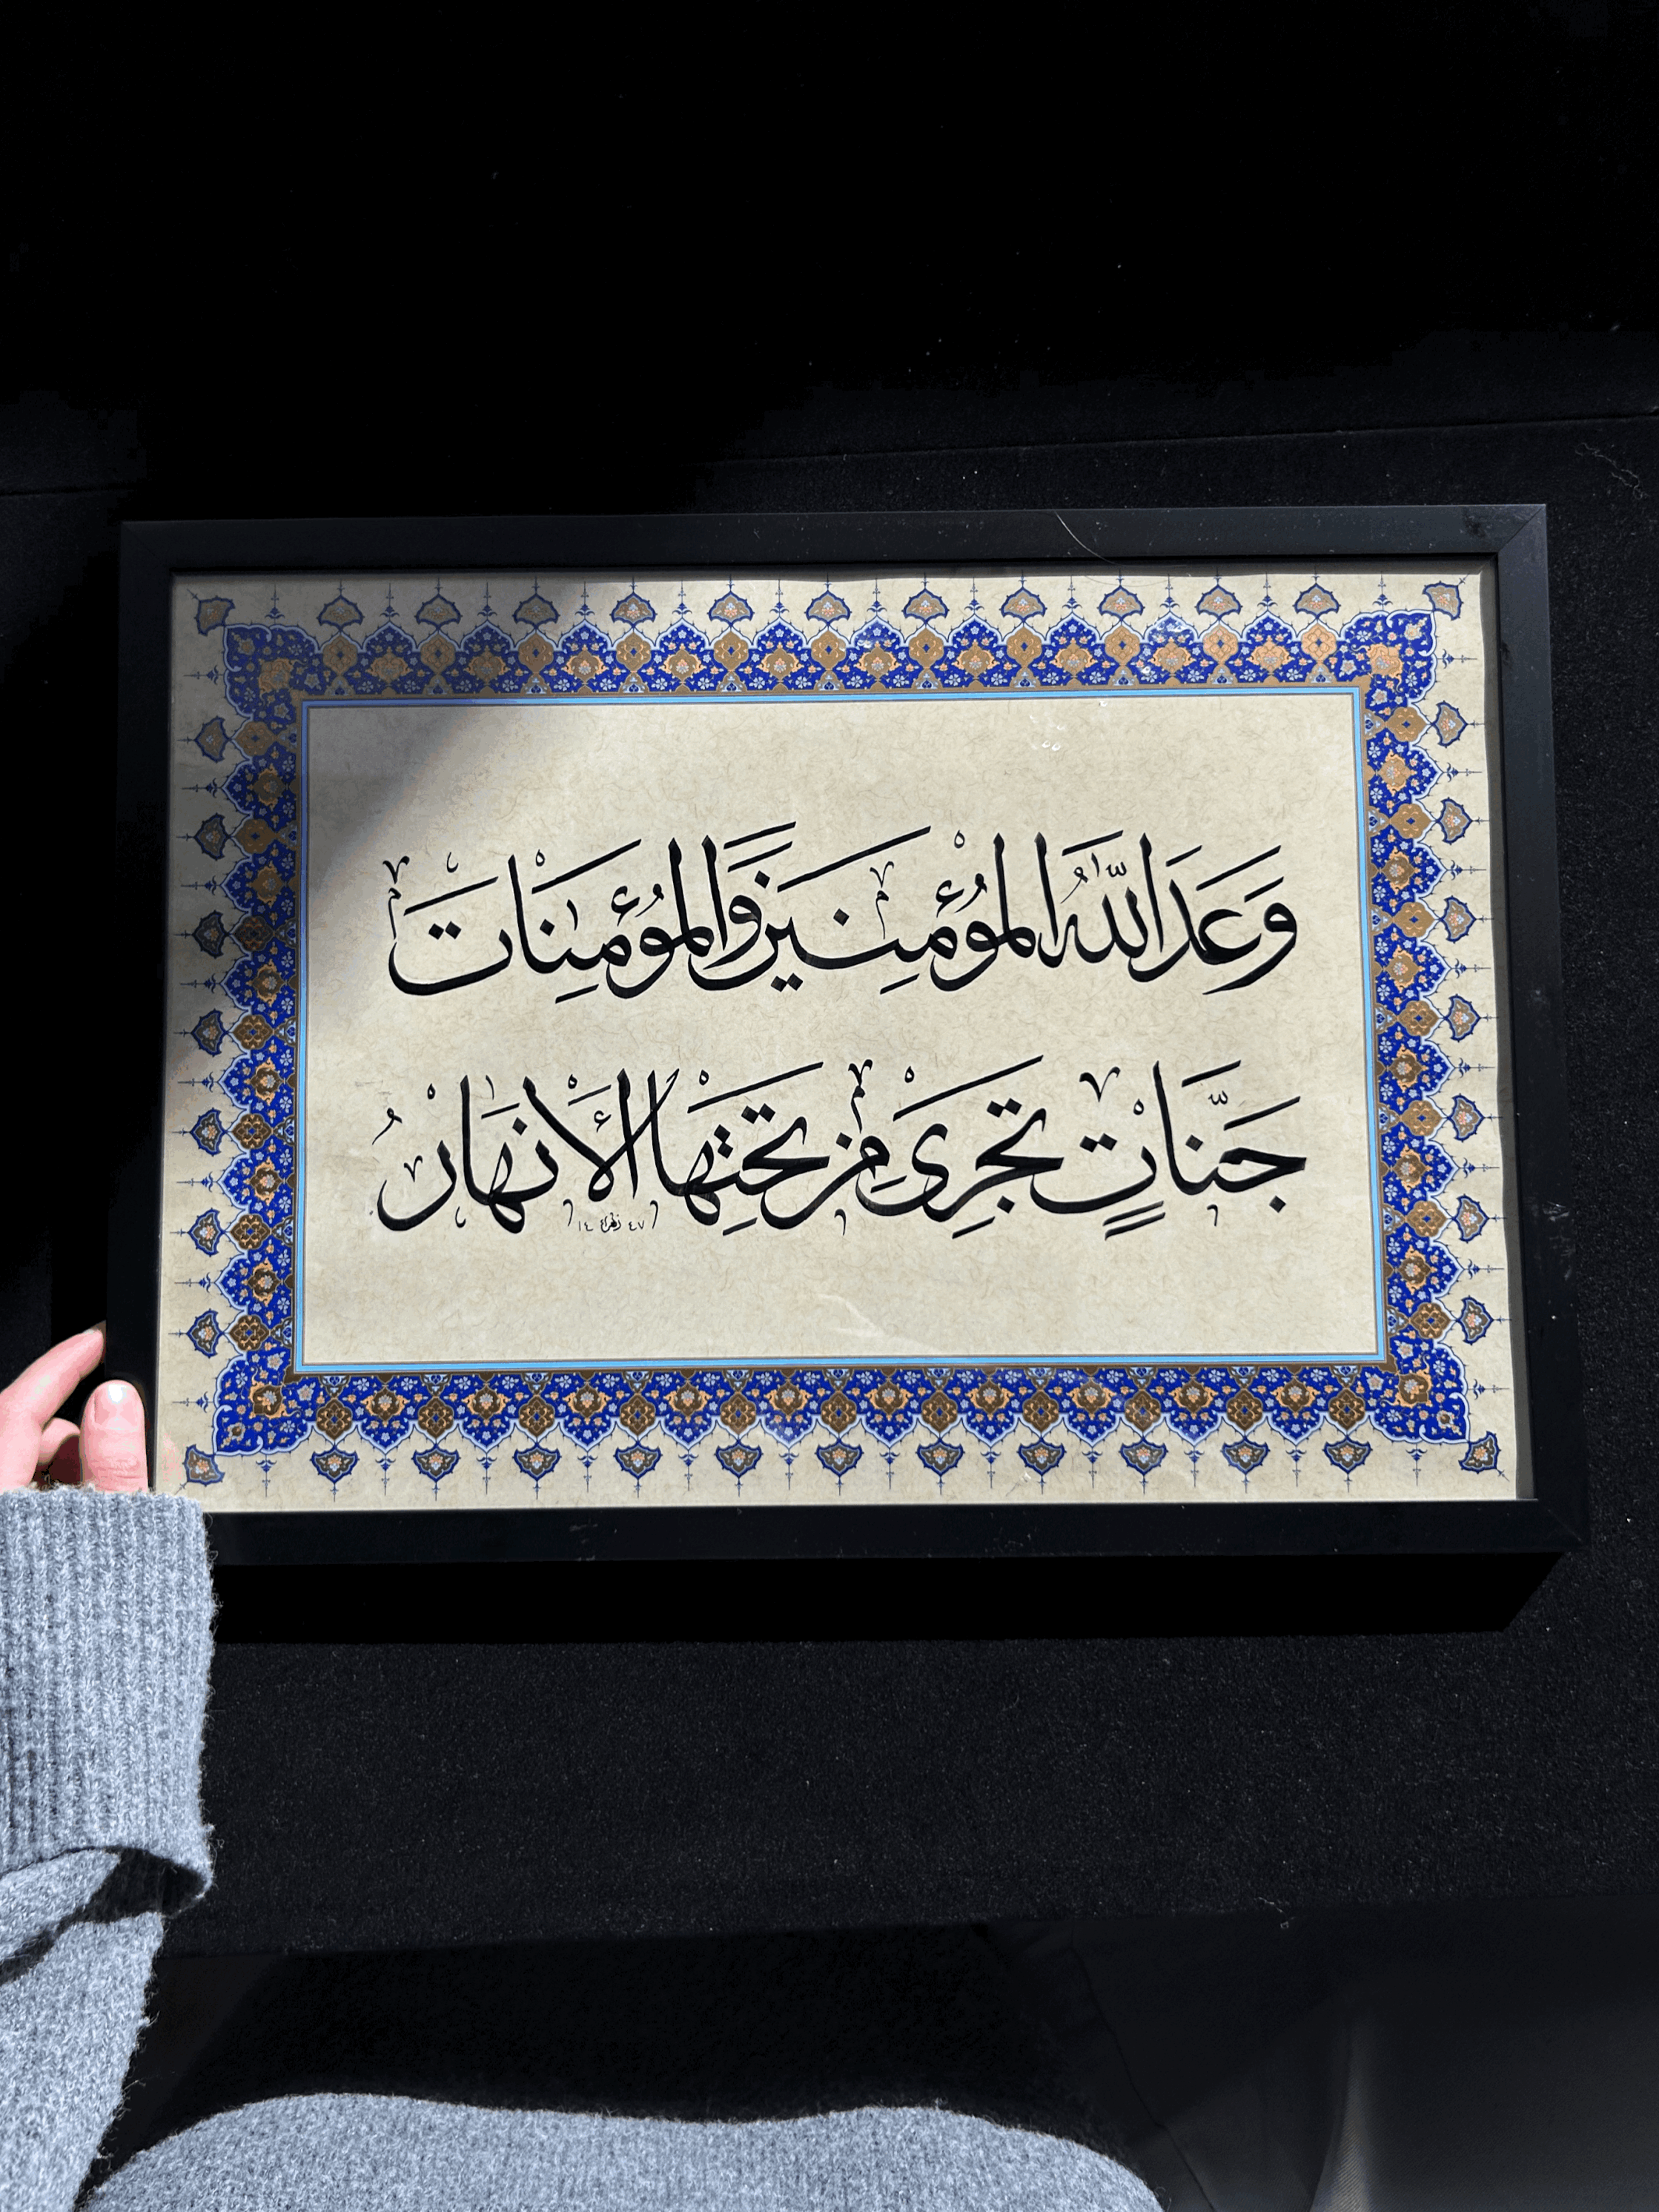 وَعَدَ اللّٰهُ الْمُؤْمِنِينَ وَالْمُؤْمِنَاتِ
جَنَّاتٍ تَجْرِى مِنْ تَحْتِهَا الْأَنْهَارُ